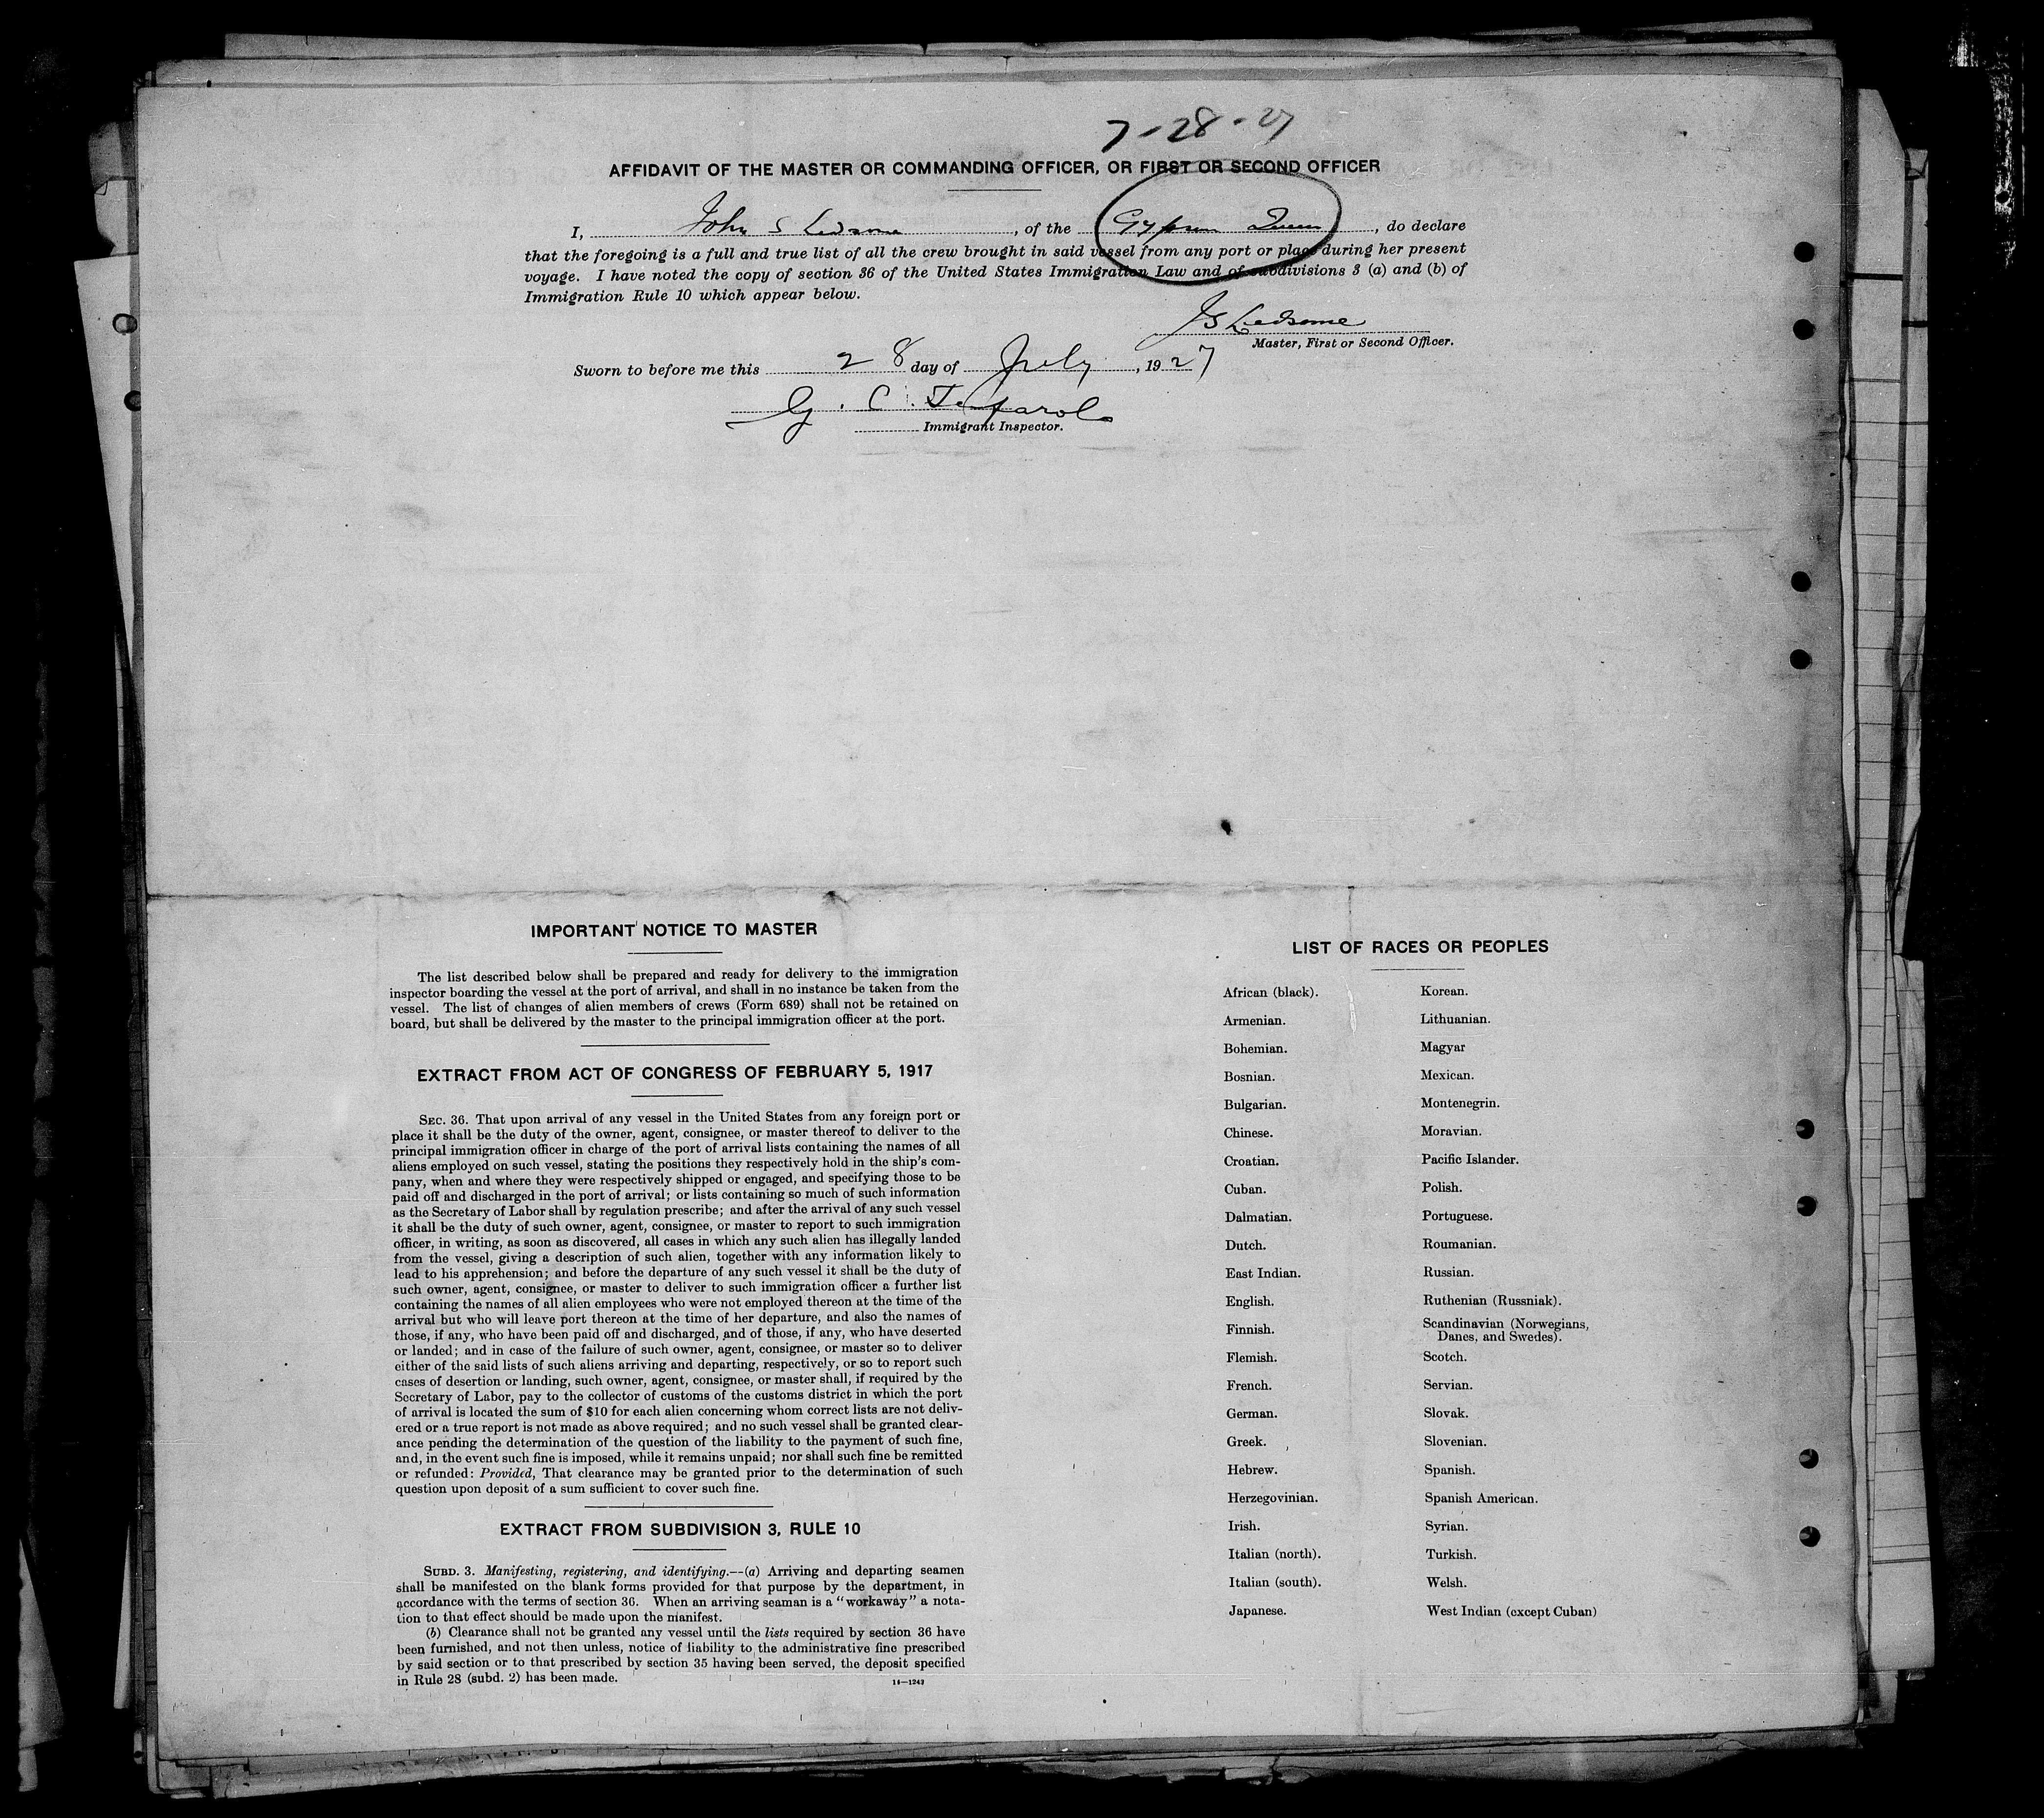 7-28-27
AFFIDAVIT OF THE MASTER OR COMMANDING OFFICER, OR FIRST OR SECOND OFFICER
I, John S Ledsome, of the Gypsum Queen, do declare
that the foregoing is a full and true list of all the crew brought in said vessel from any port or place during her present
voyage. I have noted the copy of section 36 of the United States Immigration Law and of subdivisions 3 (a) and (b) of
Immigration Rule 10 which appear below.
JS Ledsome
Master, First or Second Officer.
Sworn to before me this 28 day of July, 1927
G. C.
Immigrant Inspector.
IMPORTANT NOTICE TO MASTER
The list described below shall be prepared and ready for delivery to the immigration
inspector boarding the vessel at the port of arrival, and shall in no instance be taken from the
vessel. The list of changes of alien members of crews (Form 689) shall not be retained on
board, but shall be delivered by the master to the principal immigration officer at the port.
EXTRACT FROM ACT OF CONGRESS OF FEBRUARY 5, 1917
SEC. 36. That upon arrival of any vessel in the United States from any foreign port or
place it shall be the duty of the owner, agent, consignee, or master thereof to deliver to the
principal immigration officer in charge of the port of arrival lists containing the names of all
aliens employed on such vessel, stating the positions they respectively hold in the ship's com-
pany, when and where they were respectively shipped or engaged, and specifying those to be
paid off and discharged in the port of arrival; or lists containing so much of such information
as the Secretary of Labor shall by regulation prescribe; and after the arrival of any such vessel
it shall be the duty of such owner, agent, consignee, or master to report to such immigration
officer, in writing, as soon as discovered, all cases in which any such alien has illegally landed
from the vessel, giving a description of such alien, together with any information likely to
lead to his apprehension; and before the departure of any such vessel it shall be the duty of
such owner, agent, consignee, or master to deliver to such immigration officer a further list
containing the names of all alien employees who were not employed thereon at the time of the
arrival but who will leave port thereon at the time of her departure, and also the names of
those, if any, who have been paid off and discharged, and of those, if any, who have deserted
or landed; and in case of the failure of such owner, agent, consignee, or master so to deliver
either of the said lists of such aliens arriving and departing, respectively, or so to report such
cases of desertion or landing, such owner, agent, consignee, or master shall, if required by the
Secretary of Labor, pay to the collector of customs of the customs district in which the port
of arrival is located the sum of $10 for each alien concerning whom correct lists are not deliv-
ered or a true report is not made as above required; and no such vessel shall be granted clear-
ance pending the determination of the question of the liability to the payment of such fine,
and, in the event such fine is imposed, while it remains unpaid; nor shall such fine be remitted
or refunded: Provided, That clearance may be granted prior to the determination of such
question upon deposit of a sum sufficient to cover such fine.
EXTRACT FROM SUBDIVISION 3, RULE 10
SUBD. 3. Manifesting, registering, and identifying.--(a) Arriving and departing seamen
shall be manifested on the blank forms provided for that purpose by the department, in
accordance with the terms of section 36. When an arriving seaman is a "workaway" a nota-
tion to that effect should be made upon the manifest.
(b) Clearance shall not be granted any vessel until the lists required by section 36 have
been furnished, and not then unless, notice of liability to the administrative fine prescribed
by said section or to that prescribed by section 35 having been served, the deposit specified
in Rule 28 (subd. 2) has been made.
14—1242
LIST OF RACES OR PEOPLES
African (black).
Armenian.
Bohemian.
Bosnian.
Bulgarian.
Chinese.
Croatian.
Cuban.
Dalmatian.
Dutch.
East Indian.
English.
Finnish.
Flemish.
French.
German.
Greek.
Hebrew.
Herzegovinian.
Irish.
Italian (north).
Italian (south).
Japanese.
Korean.
Lithuanian.
Magyar
Mexican.
Montenegrin.
Moravian.
Pacific Islander.
Polish.
Portuguese.
Roumanian.
Russian.
Ruthenian (Russniak).
Scandinavian (Norwegians,
Danes, and Swedes).
Scotch.
Servian.
Slovak.
Slovenian.
Spanish.
Spanish American.
Syrian.
Turkish.
Welsh.
West Indian (except Cuban)